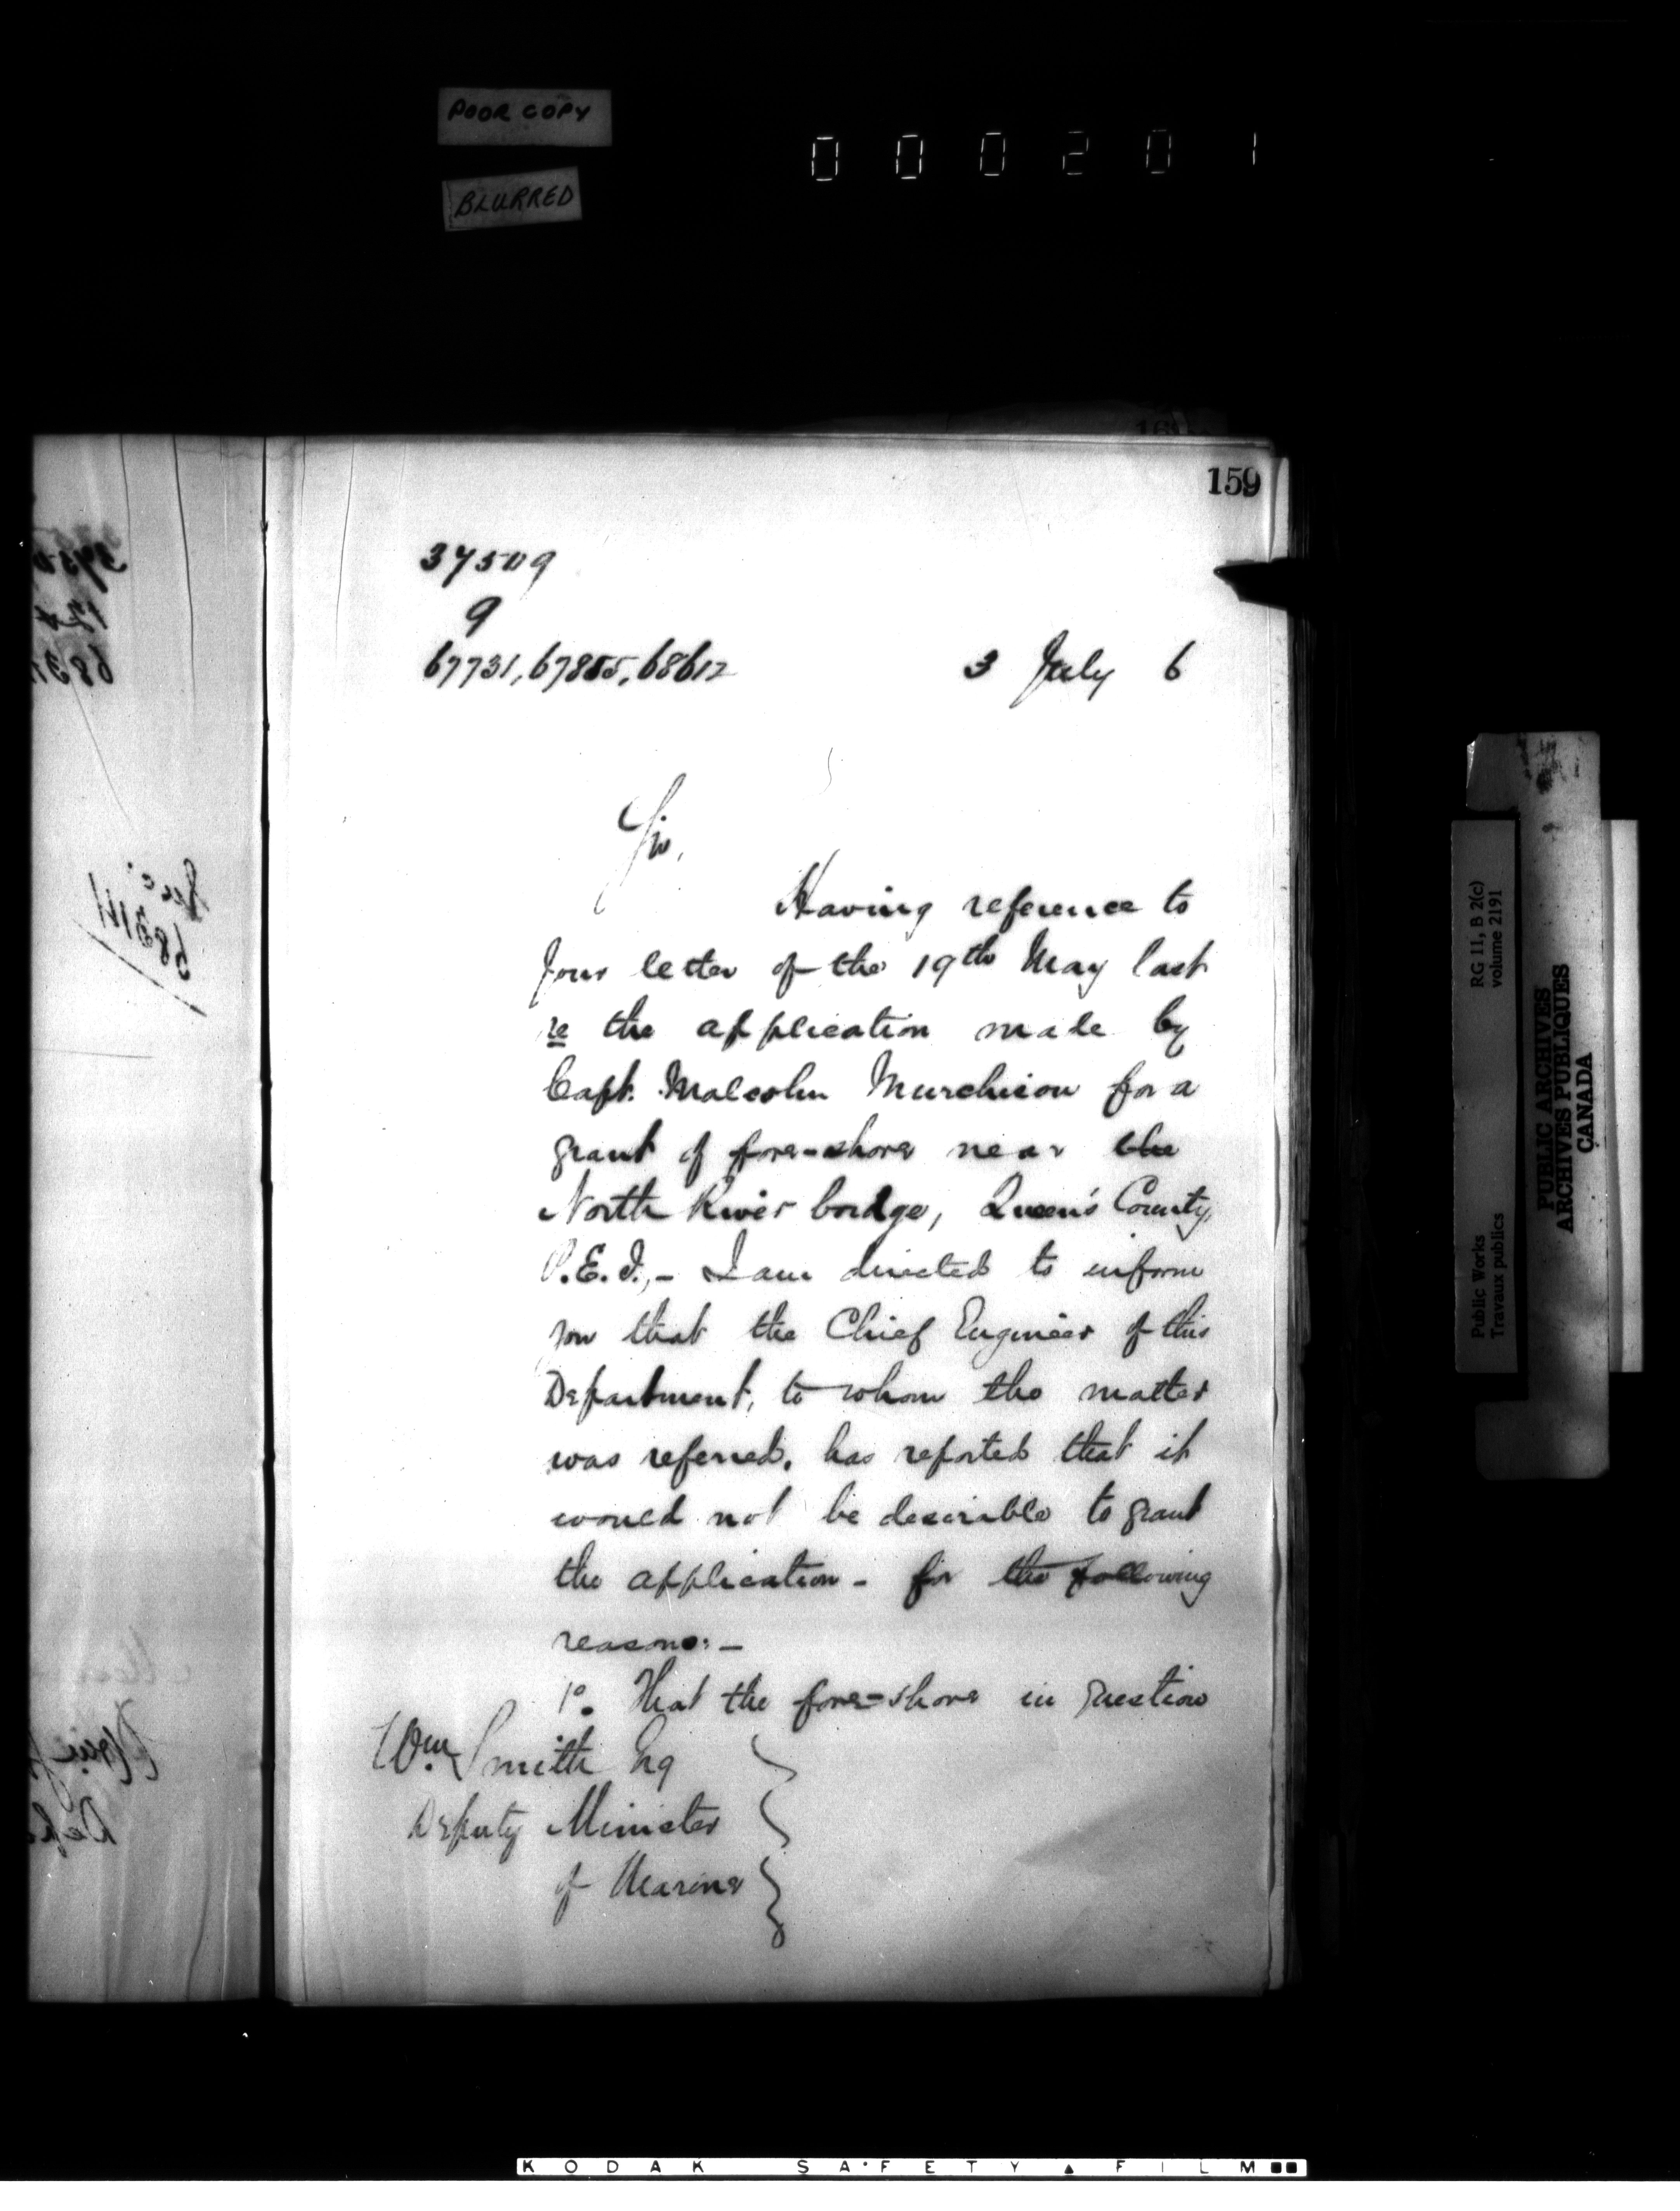 POOR COPY
BLURRED
000201
159
37509
9
67731, 67855, 68612
3 July 6
Sir,
Having reference to
your letter of the 19th May last
re the application made by
Capt. Malcolm Murchison for a
grant of fore-shore near the
North River bridge, Queen's County,
P.E.I., - I am directed to inform
you that the Chief Engineer of this
Department, to whom the matter
was referred, has reported that it
would not be desirable to grant
the application - for the following
reasons: -
1o. That the fore-shore in question
Wm. Smith Esq
Deputy Minister
of Marine
RG 11, B 2(c)
volume 2191
Public Works
Travaux publics
PUBLIC ARCHIVES
ARCHIVES PUBLIQUES
CANADA
KODAK SAFETY FILM